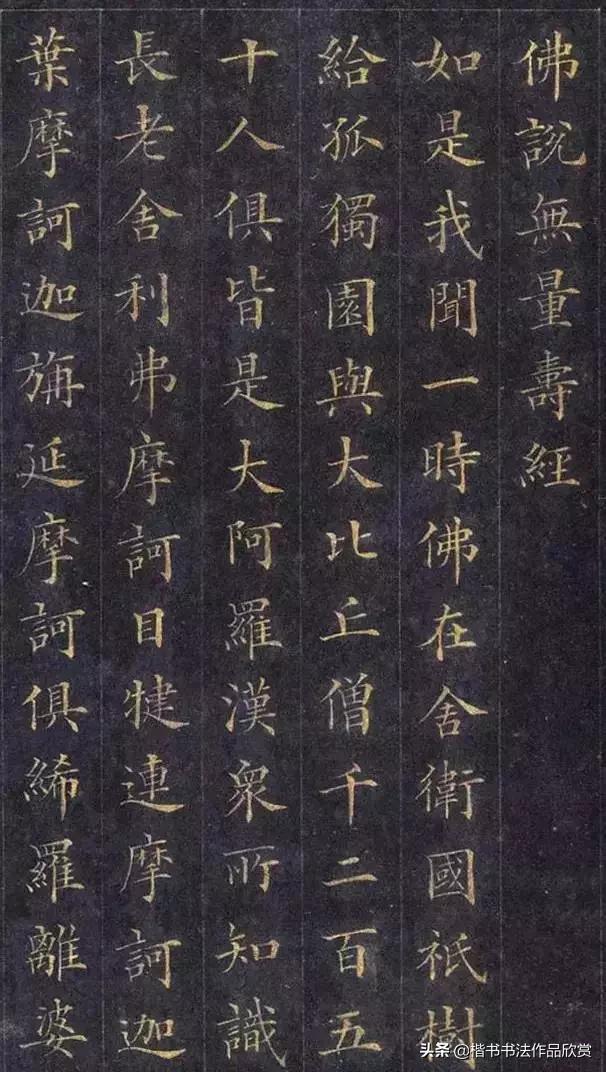 佛說無量壽經
如是我聞一時佛在舍衛國祇樹
給孤獨園與大比丘僧千二百五
十人俱皆是大阿羅漢衆所知識
長老舍利弗摩訶目犍連摩訶迦
葉摩訶迦旃延摩訶俱絺羅離婆
头条 @楷书书法作品欣赏